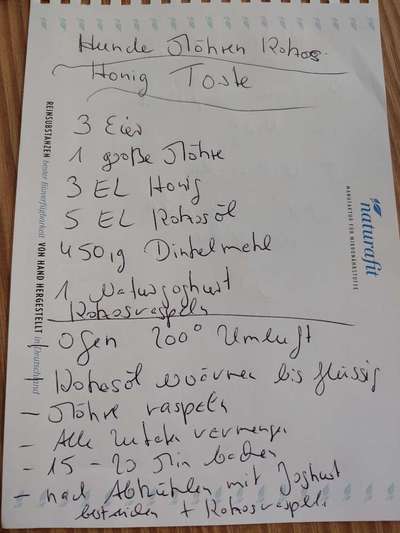 Hunde Möhren Kokos
Honig Torte
3 Eier
1 große Möhre
3 EL Honig
5 EL Kokosöl
450g Dinkelmehl
1 Naturjoghurt
Kokosraspeln
- Ofen 200° Umluft
- Kokosöl erwärmen bis flüssig
- Möhre raspeln
- Alle Zutaten vermengen
- 15 - 20 Min backen
- nach Abkühlen mit Joghurt
bestreichen + Kokosraspeln
REINSUBSTANZEN bester Bioverfügbarkeit VON HAND HERGESTELLT in Deutschland
naturafit
MANUFAKTUR FÜR MIKRONÄHRSTOFFE